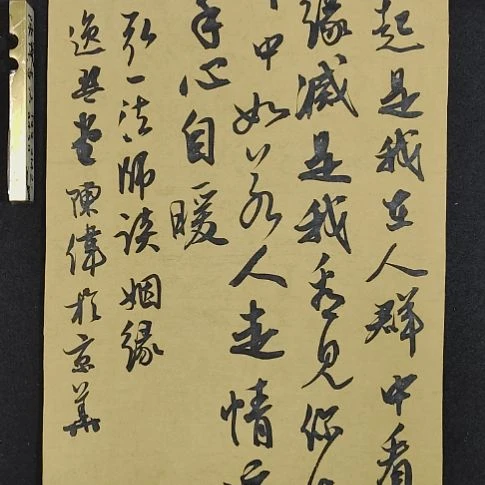 起是我在人群中看
缘滅是我看见你
中如若人走情
守心自暖
弘一法师谈姻缘
逸堂陳偉於京華